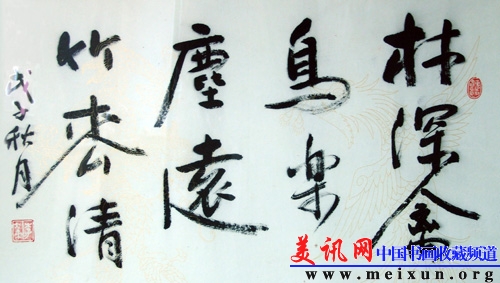 林深禽
鳥楽
塵遠
竹枩清
戊子秋月
美讯网 中国书画收藏频道
www.meixun.org